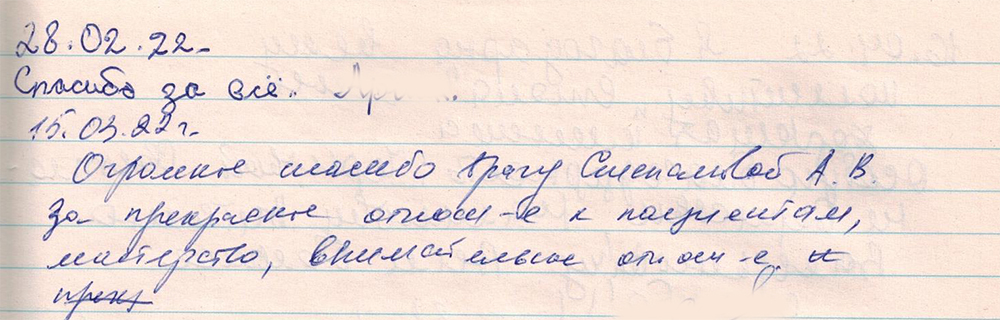 28.02.22-
Спасибо за всё.
15.03.22г.
Огромное спасибо врачу Степановой А. В.
За прекрасное отнош-е к пациентам,
мастерство, внимательное отнош-е,